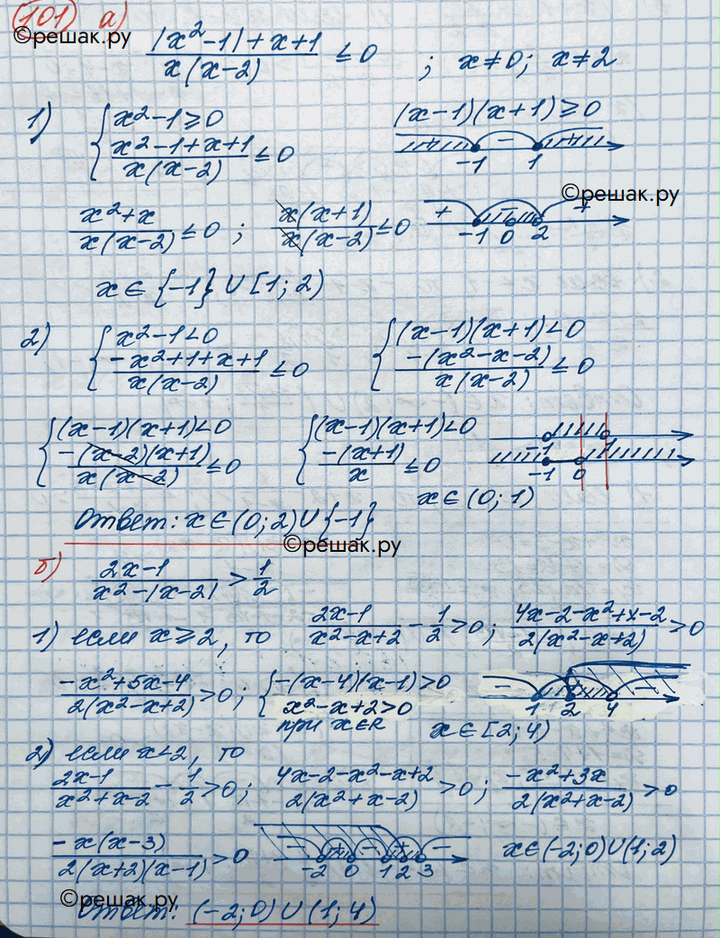 101) а)
©решак.ру
(|x²-1|+x+1)/(x(x-2)) ≤ 0 ; x≠0; x≠2
1) { x²-1≥0 (x-1)(x+1)≥0
{ (x²-1+x+1)/(x(x-2)) ≤0 + - + -1 1
©решак.ру
(x²+x)/(x(x-2)) ≤0 ; (x(x+1))/(x(x-2)) ≤0 + - + -1 0 2
x∈{-1}∪[1;2)
2) { x²-1<0 { (x-1)(x+1)<0
{ (-x²+1+x+1)/(x(x-2)) ≤0 { (-(x²-x-2))/(x(x-2)) ≤0
{ (x-1)(x+1)<0 { (x-1)(x+1)<0 -1 1
{ (-(x-2)(x+1))/(x(x-2)) ≤0 { (-(x+1))/x ≤0 -1 0
x∈(0;1)
Ответ: x∈(0;2)∪{-1}
©решак.ру
б) (2x-1)/(x²-|x-2|) > 1/2
1) если x≥2, то (2x-1)/(x²-x+2) - 1/2 >0; (4x-2-x²+x-2)/(2(x²-x+2)) >0
(-x²+5x-4)/(2(x²-x+2)) >0; { -(x-4)(x-1)>0 - + - 1 2 4
{ x²-x+2>0
при x∈R x∈[2;4)
2) если x<2, то
(2x-1)/(x²+x-2) - 1/2 >0; (4x-2-x²-x+2)/(2(x²+x-2)) >0; (-x²+3x)/(2(x²+x-2)) >0
(-x(x-3))/(2(x+2)(x-1)) >0 - + - + - -2 0 1 2 3 x∈(-2;0)∪(1;2)
©решак.ру
Ответ: (-2;0)∪(1;4)